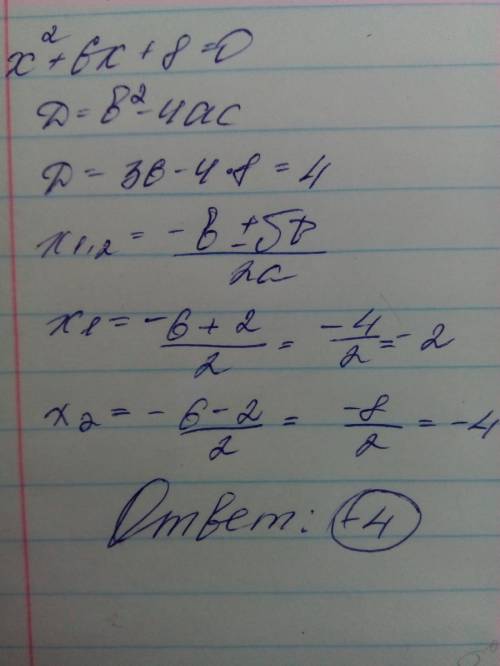 x² + 6x + 8 = 0
D = b² - 4ac
D = 36 - 4·8 = 4
x₁,₂ = (-b ± √D) / 2a
x₁ = (-6 + 2) / 2 = -4 / 2 = -2
x₂ = (-6 - 2) / 2 = -8 / 2 = -4
Ответ: -4